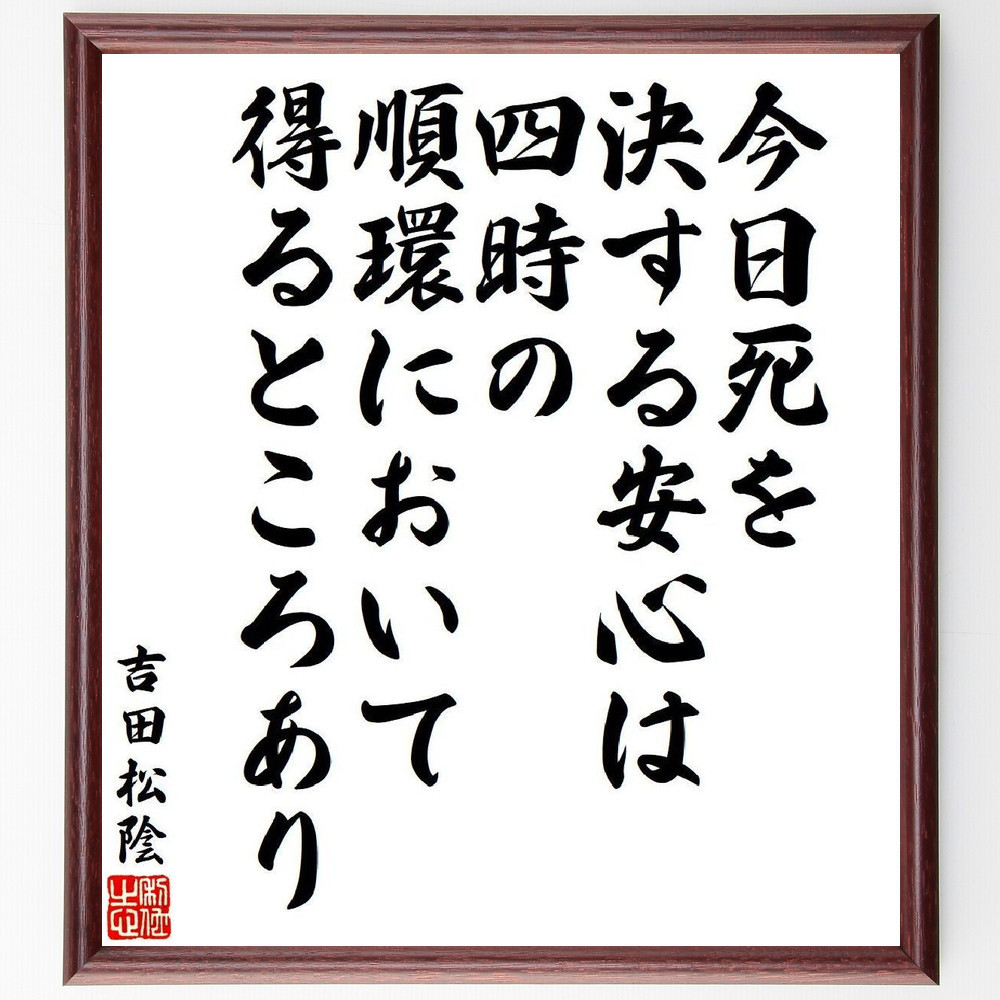 今日死を
決する安心は
四時の
順環において
得るところあり
吉田松陰